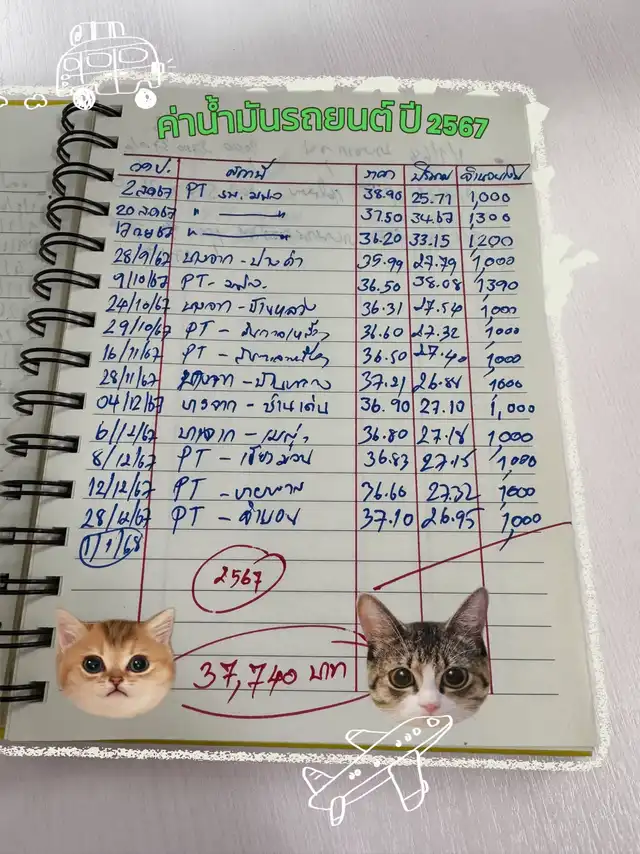 ค่าน้ำมันรถยนต์ ปี 2567
ว ด ป. สถานี ราคา ปริมาณ จำนวนเงิน
2 สค 67 PT รพ. 38.90 25.71 1,000
20 สค 67 " " 37.50 34.67 1300
17 กย 67 " " 36.20 33.15 1200
28/9/67 บางจาก - 35.99 27.79 1,000
9/10/67 PT - 36.50 38.08 1390
24/10/67 บางจาก - บ้านหลวง 36.31 27.54 1,000
29/10/67 PT - 36.60 27.32 1,000
16/11/67 PT - 36.50 27.40 1,000
28/11/67 บางจาก - 37.21 26.88 1000
04/12/67 บางจาก - บ้านเด่น 36.90 27.10 1,000
6/12/67 บางจาก - 36.80 27.18 1,000
8/12/67 PT - เชียวม่วน 36.83 27.15 1,000
12/12/67 PT - 36.60 27.32 1,000
28/12/67 PT - 37.10 26.95 1,000
1/1/68
2567
37,740 บาท